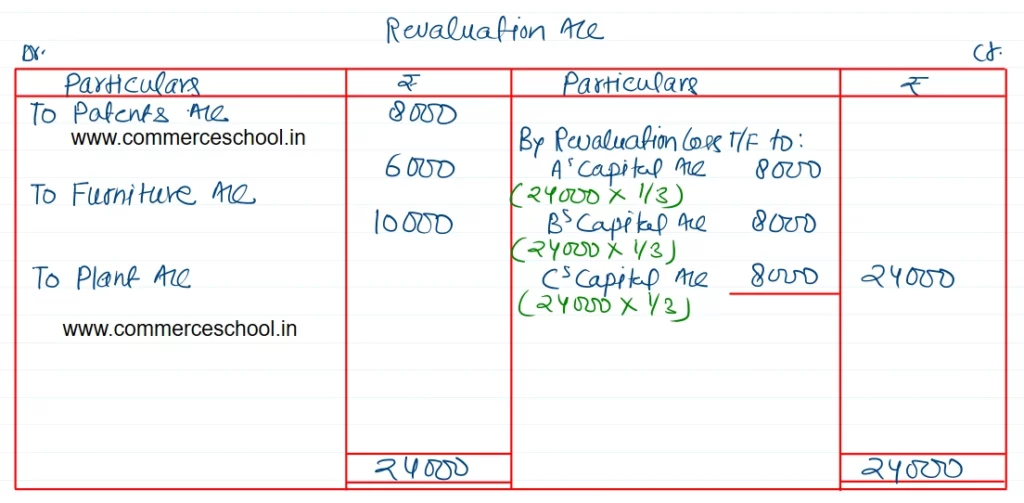 Revaluation A/c
Dr. Cr.
Particulars ₹ Particulars ₹
To Patents A/c 8000
www.commerceschool.in
By Revaluation Loss T/F to:
6000 A's Capital A/c 8000
To Furniture A/c (24000 x 1/3)
10000 B's Capital A/c 8000
(24000 x 1/3)
To Plant A/c C's Capital A/c 8000 24000
(24000 x 1/3)
www.commerceschool.in
24000 24000